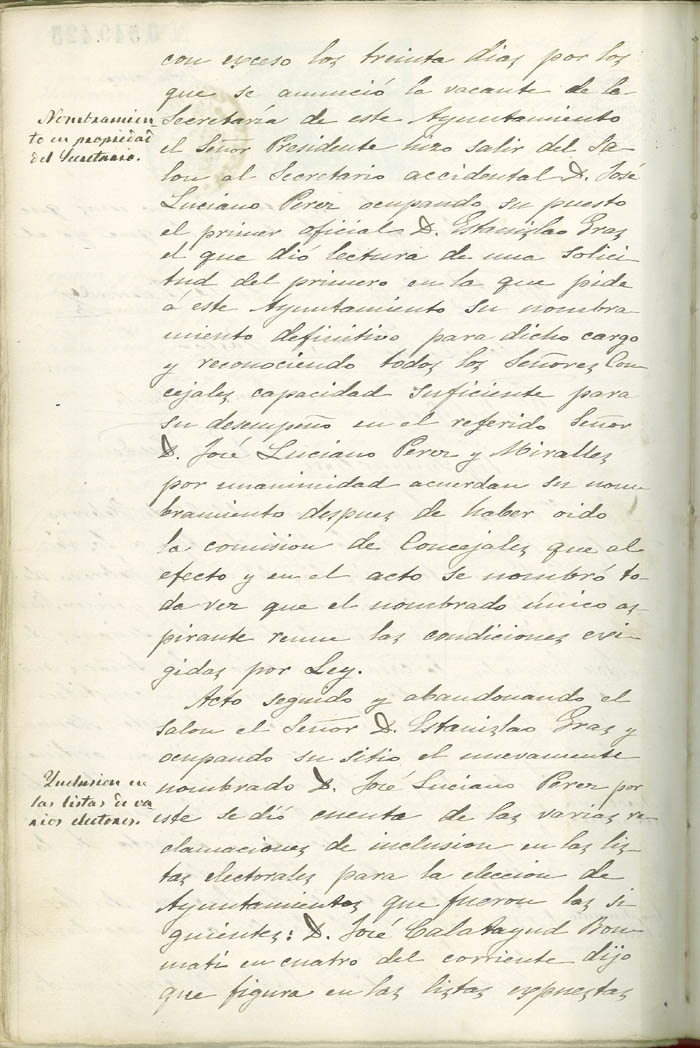 con exceso los treinta dias por los
que se anunció la vacante de la
Nombramien
to en propiedad
del Secretario.
Secretaría de este Ayuntamiento
el Señor Presidente hizo salir del Sa-
lon al Secretario accidental D. José
Luciano Perez ocupando su puesto
el primer oficial D. Estanislao Gras
el que dió lectura de una solici
tud del primero en la que pide
á este Ayuntamiento su nombra-
miento definitivo para dicho cargo
y reconociendo todos los Señores Con-
cejales capacidad suficiente para
su desempeño en el referido Señor
D. José Luciano Perez y Miralles
por unanimidad acuerdan su nom
bramiento despues de haber oido
la comision de Concejales que al
efecto y en el acto se nombró to-
da vez que el nombrado único as-
pirante reune las condiciones exi-
gidas por Ley.
Acto seguido y abandonando el
salon el Señor D. Estanislao Gras y
ocupando su sitio el nuevamente
Inclusion en
las listas de va
rios electores.
nombrado D. José Luciano Perez por
este se dió cuenta de las varias re-
clamaciones de inclusion en las lis
tas electorales para la eleccion de
Ayuntamientos que fueron las si
guientes: D. José Calatayud Bon-
matí en cuatro del corriente dijo
que figura en las listas expuestas